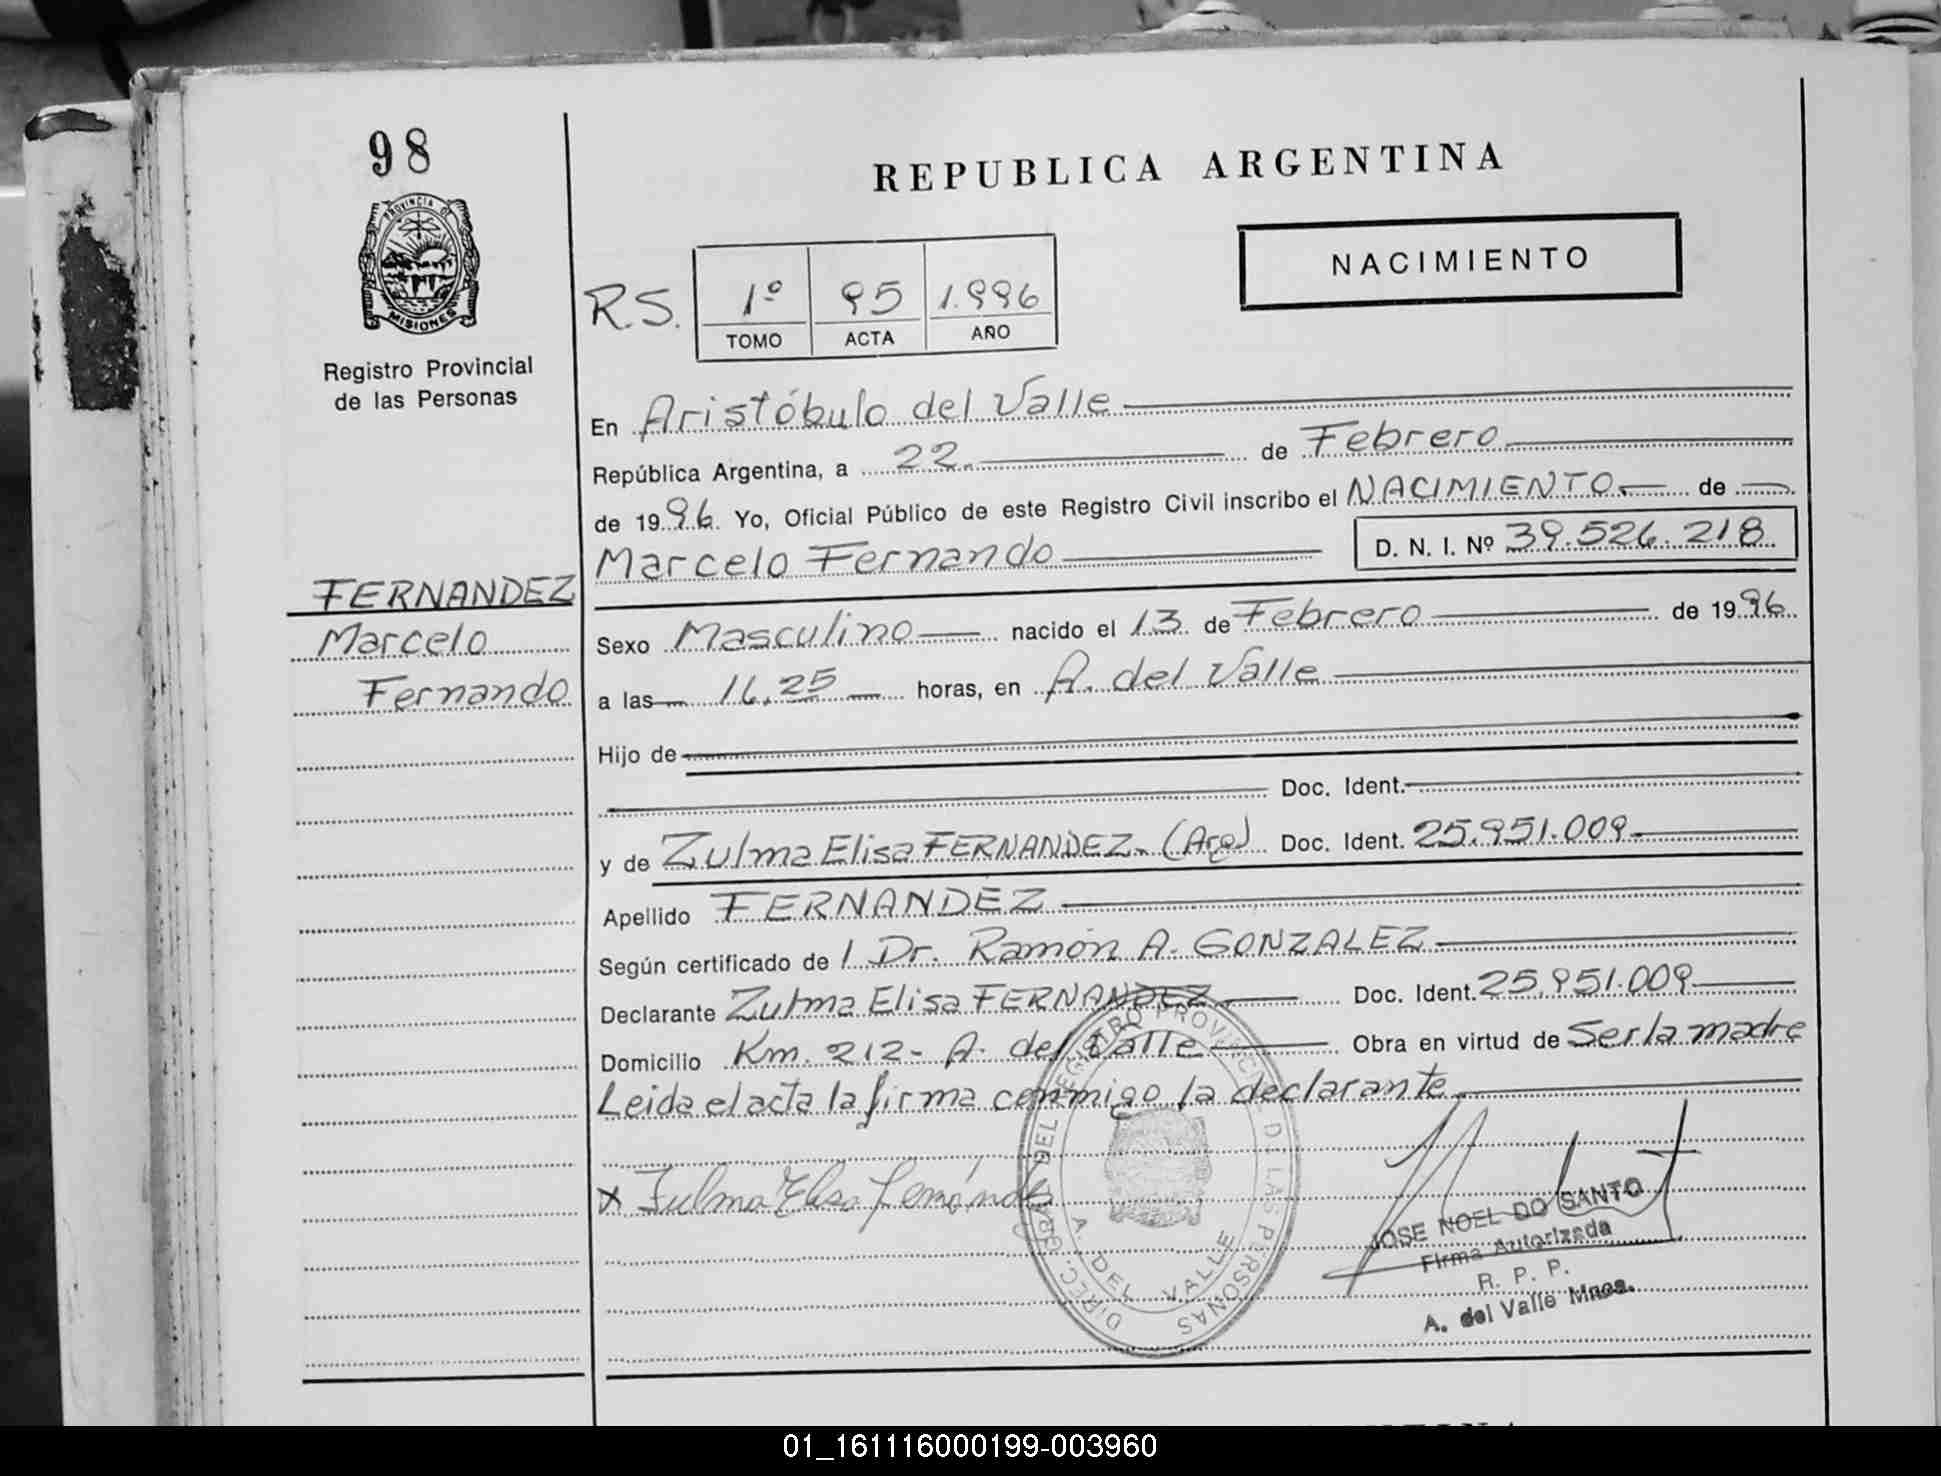 98
PROVINCIA DE
MISIONES
Registro Provincial
de las Personas
FERNANDEZ
Marcelo
Fernando
REPUBLICA ARGENTINA
NACIMIENTO
R.S. 1º 95 1.996
TOMO ACTA AÑO
En Aristóbulo del Valle
República Argentina, a 22 de Febrero
de 1996. Yo, Oficial Público de este Registro Civil inscribo el NACIMIENTO de
Marcelo Fernando D. N. I. Nº 39.526.218
Sexo Masculino nacido el 13 de Febrero de 1996
a las 16,25 horas, en A. del Valle
Hijo de
Doc. Ident.
y de Zulma Elisa FERNANDEZ. (Arg) Doc. Ident. 25.951.009
Apellido FERNANDEZ
Según certificado de / Dr. Ramón A. GONZALEZ
Declarante Zulma Elisa FERNANDEZ Doc. Ident. 25.951.009
Domicilio Km. 212- A. del Valle Obra en virtud de Ser la madre
Leida el acta la firma conmigo la declarante
x Zulma Elisa Fernández
DIREC. GRAL DEL REGISTRO PROVINCIAL D. LAS PERSONAS
A. DEL VALLE
JOSE NOEL DO SANTO
Firma Autorizada
R. P. P.
A. del Valle Mnes.
01_161116000199-003960